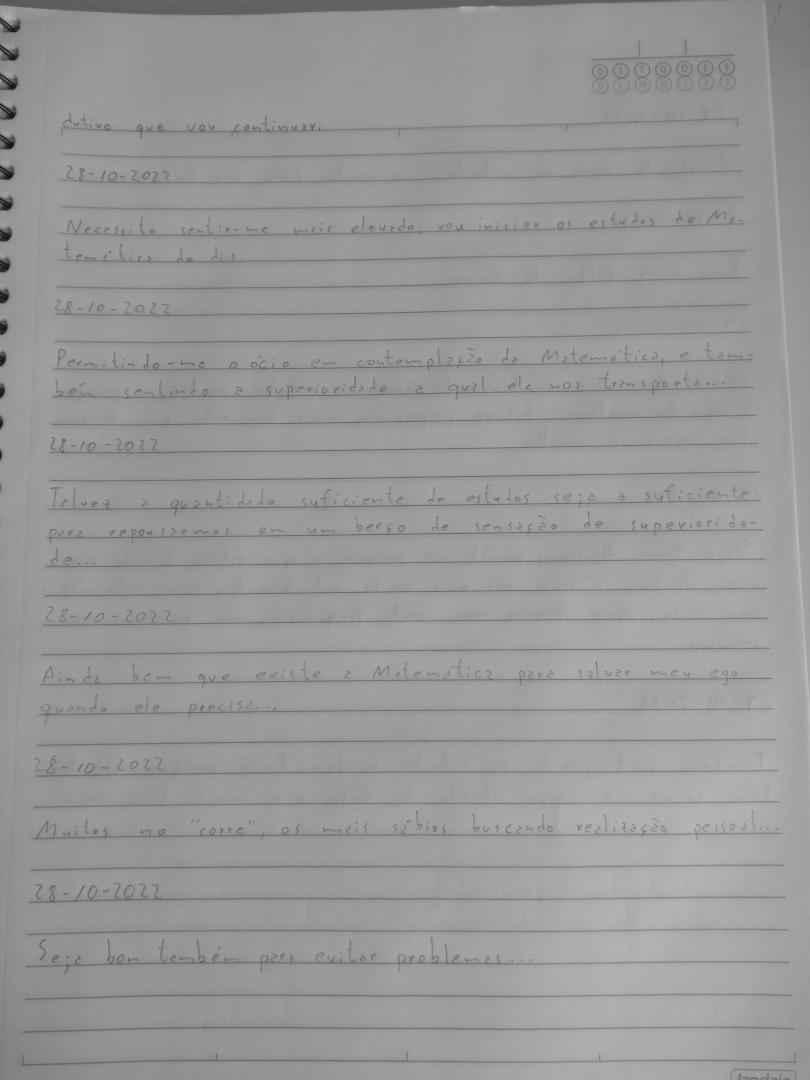 D S T Q Q S S
D L M M J V S
dutivo que vou continuar.
28-10-2022
Necessito sentir-me mais elevado, vou iniciar os estudos de Ma-
temática do dia.
28-10-2022
Permitindo-me o ócio em contemplação da Matemática, e tam-
bém sentindo a superioridade a qual ela nos transporta...
28-10-2022
Talvez a quantidade suficiente de estudos seja a suficiente
para repousarmos em um berço de sensação de superiorida-
de...
28-10-2022
Ainda bem que existe a Matemática para salvar meu ego
quando ele precisa...
28-10-2022
Muitos no "corre", os mais sábios buscando realização pessoal...
28-10-2022
Seja bom também para evitar problemas...